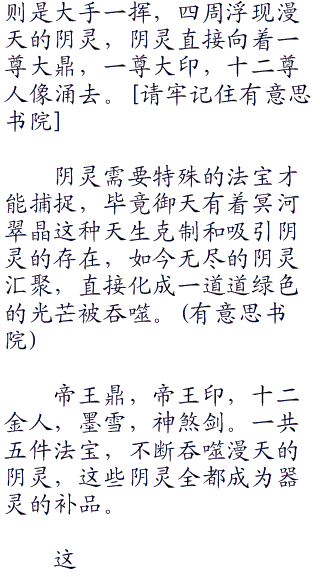 则是大手一挥，四周浮现漫
天的阴灵，阴灵直接向着一
尊大鼎，一尊大印，十二尊
人像涌去。[请牢记住有意思
书院]
阴灵需要特殊的法宝才
能捕捉，毕竟御天有着冥河
翠晶这种天生克制和吸引阴
灵的存在，如今无尽的阴灵
汇聚，直接化成一道道绿色
的光芒被吞噬。(有意思书
院)
帝王鼎，帝王印，十二
金人，墨雪，神煞剑。一共
五件法宝，不断吞噬漫天的
阴灵，这些阴灵全都成为器
灵的补品。
这